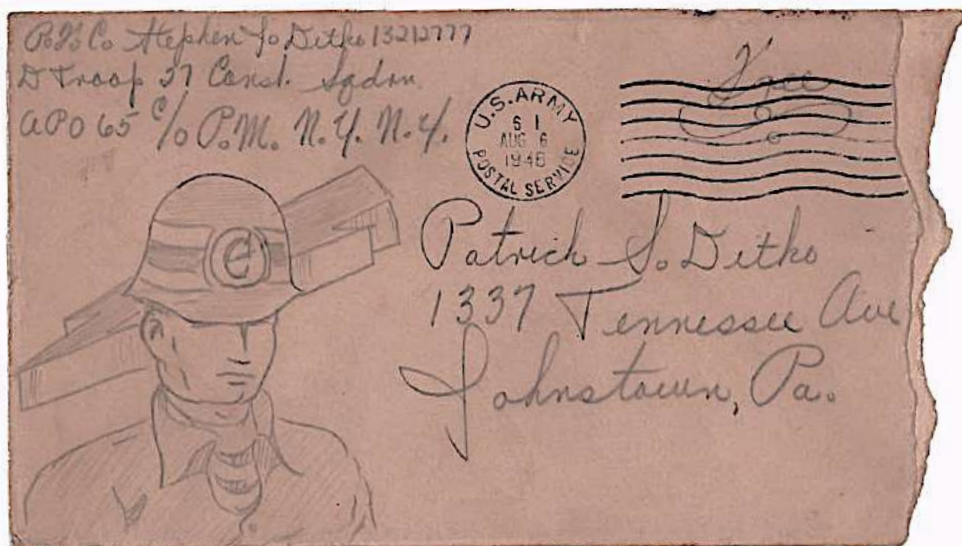 Stephen J. Ditko 13212777
D Troop 27 Const. Sqdrn
APO 65 c/o P.M. N.Y. N.Y.
U.S. ARMY
6 1
AUG 6
1946
POSTAL SERVICE
Free
C
Patrick S. Ditko
1337 Tennessee Ave
Johnstown, Pa.